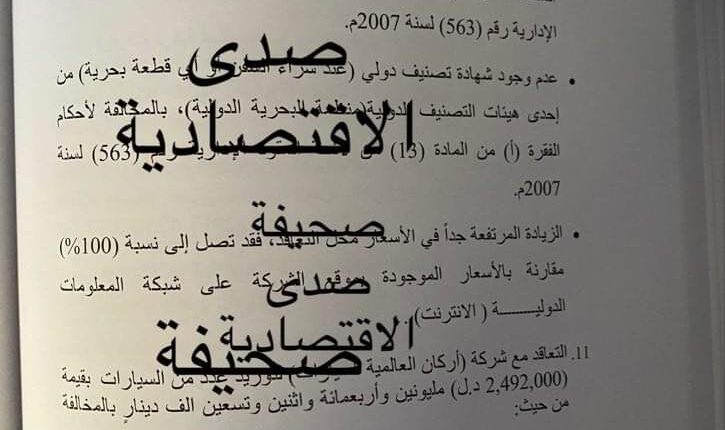 الإدارية رقم (563) لسنة 2007م.
• عدم وجود شهادة تصنيف دولي (عند شراء السفن أو أي قطعة بحرية) من
إحدى هيئات التصنيف الدولية (منظمة البحرية الدولية)، بالمخالفة لأحكام
الفقرة (أ) من المادة (13) رقم (563) لسنة
2007م.
• الزيادة المرتفعة جداً في الأسعار محل التعاقد، فقد تصل إلى نسبة (100%)
مقارنة بالأسعار الموجودة بموقع الشركة على شبكة المعلومات
الدوليـــــــة ( الانترنت)
11. التعاقد مع شركة (أركان العالمية لتوريد عدد من السيارات بقيمة
(2,492,000 د.ل) مليونين وأربعمائة واثنين وتسعين الف دينارٍ بالمخالفة
من حيث:
صدى
الاقتصادية
صحيفة
صدى
الاقتصادية
صحيفة